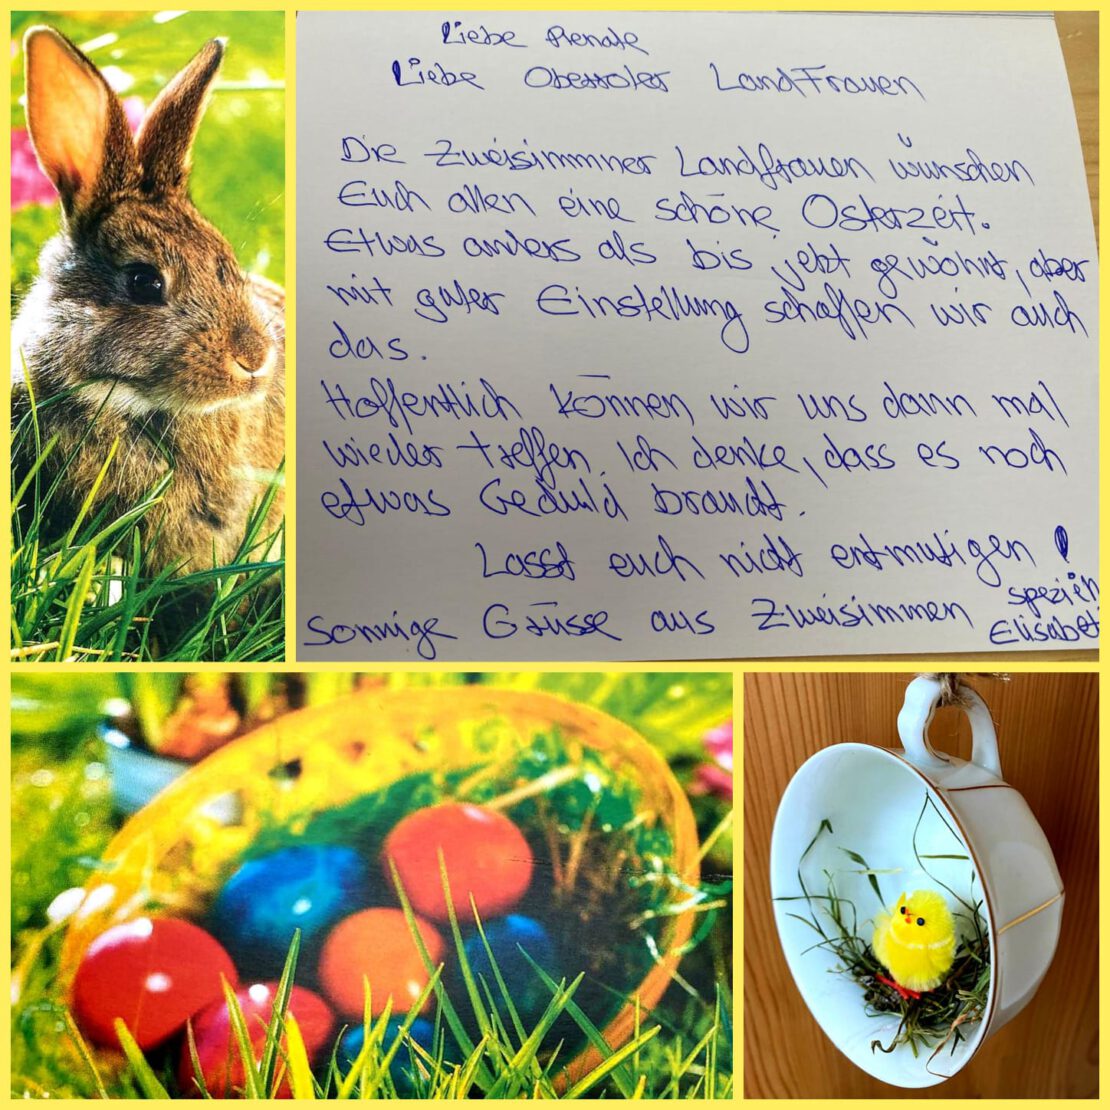 Liebe Renate
Liebe Obertoler LandFrauen
Die Zweisimmner Landfrauen wünschen
Euch allen eine schöne Osterzeit.
Etwas anders als bis jetzt gewohnt, aber
mit guter Einstellung schaffen wir auch
das.
Hoffentlich können wir uns dann mal
wieder treffen. Ich denke, dass es noch
etwas Geduld braucht.
Lasst euch nicht entmutigen!
Sonnige Grüsse aus Zweisimmen
Elisabet